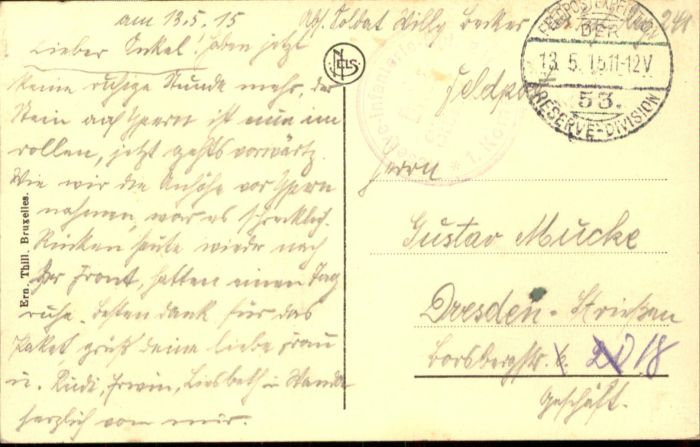 am 13.5.15 Abs. Soldat Willy Becker
Lieber Onkel! Haben jetzt
keine ruhige Stunde mehr, der
Stein auf Ypern ist nun im
rollen, jetzt gehts vorwärtz.
Wie wir die Anhöhe vor Ypern
nahmen, war es schrecklich.
Rücken heute wieder nach
der Front, hatten einen Tag
ruhe. Besten dank für das
Paket grüß deine liebe Frau
u. Rudi, Erwin, Liesbeth u. Wanda
herzlich von mir.
NELS
Ern. Thill. Bruxelles.
DER
13.5.15 11-12V
53.
RESERVE-DIVISION
Feldpost
Herrn
Gustav Mucke
Dresden-Striesen
Borsbergstr. 18
Geschäft.